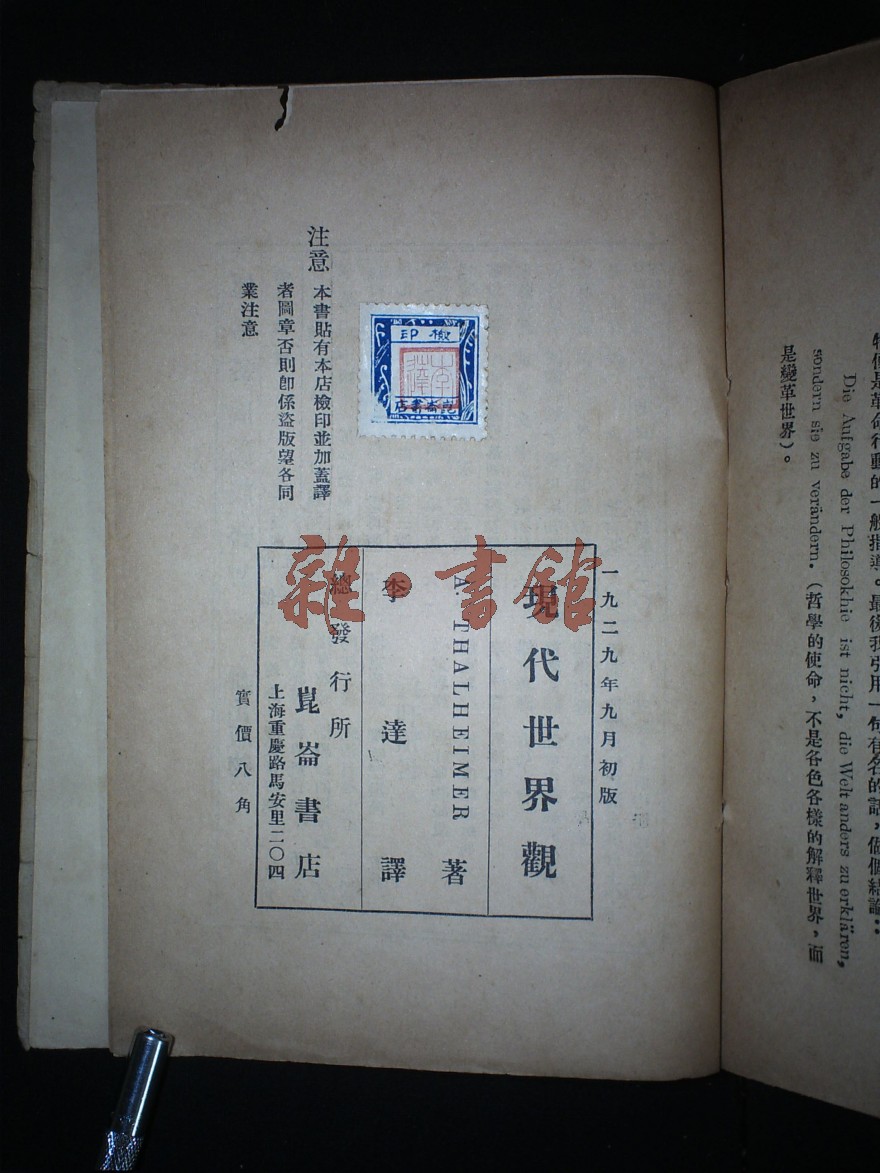 特但是革命行動的一般指導。最後我引用一句有名的話，做個結論：
Die Aufgabe der Philosokhie ist nicht, die Welt anders zu erklären,
sondern sie zu verändern.（哲學的使命，不是各色各樣的解釋世界，而
是變革世界）。
一九二九年九月初版
現代世界觀
A. THALHEIMER 著
李達譯
總發行所
崑崙書店
上海重慶路馬安里二〇四
實價八角
注意
本書貼有本店檢印並加蓋譯
者圖章否則卽係盜版望各同
業注意
檢印
崑崙書店
雜·書館